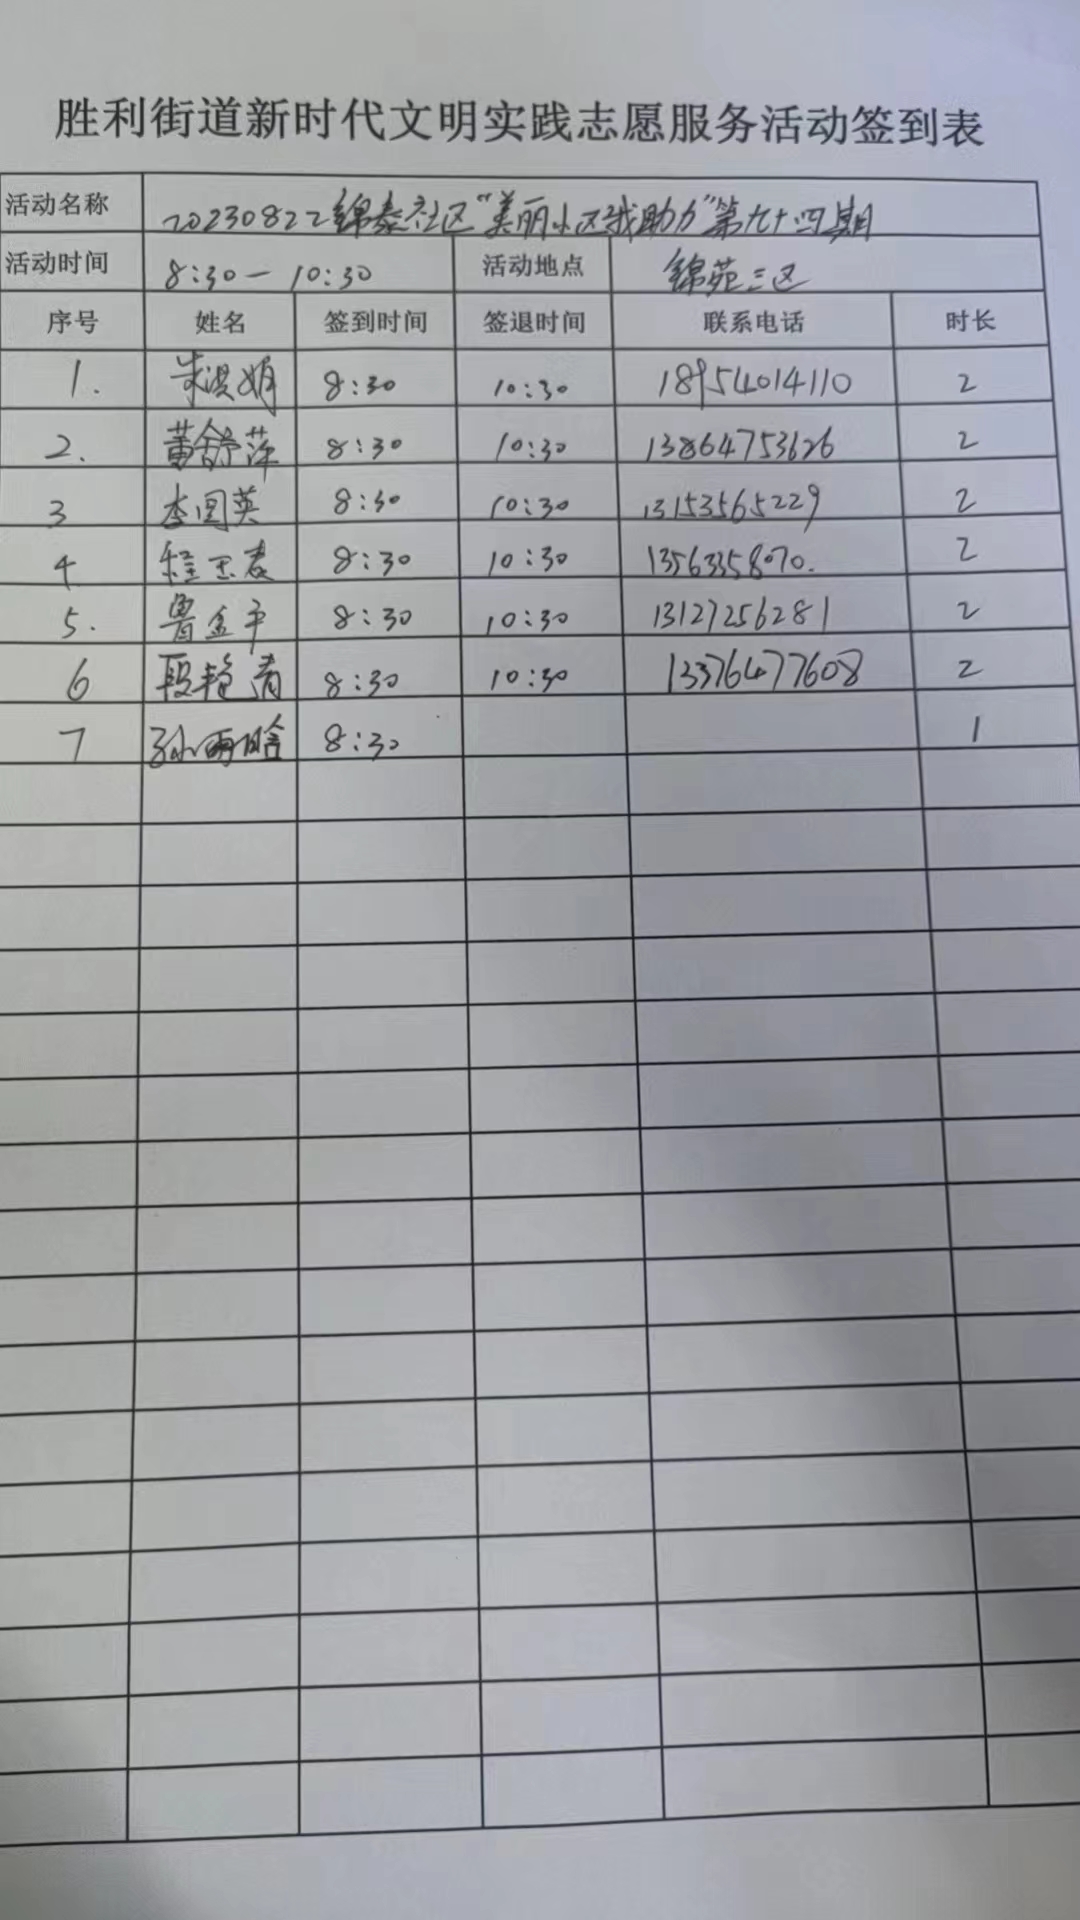 胜利街道新时代文明实践志愿服务活动签到表
活动名称 20230822锦泰社区“美丽小区我助力”第九十四期
活动时间 8:30— 10:30 活动地点 锦苑三区
序号 姓名 签到时间 签退时间 联系电话 时长
1. 朱洪娟 8:30 10:30 18954014110 2
2. 黄舒萍 8:30 10:30 13864753626 2
3 李国英 8:30 10:30 13153565229 2
4 程玉春 8:30 10:30 13563358070. 2
5. 鲁金平 8:30 10:30 13127256281 2
6 段艳清 8:30 10:30 13376477608 2
7 孙雨晗 8:30 1